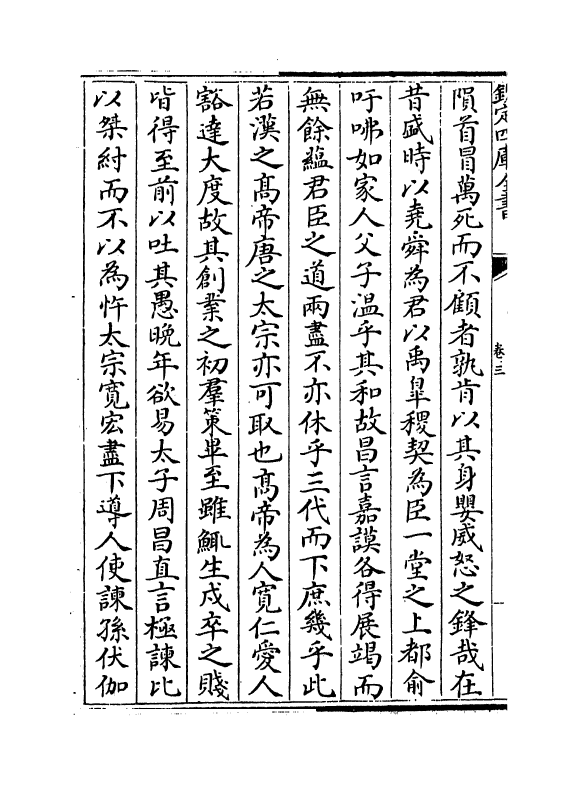 欽定四庫全書
卷三
隕首冒萬死而不顧者孰肯以其身嬰威怒之鋒哉在
昔盛時以堯舜為君以禹臯稷契為臣一堂之上都俞
吁咈如家人父子温乎其和故昌言嘉謨各得展竭而
無餘蘊君臣之道兩盡不亦休乎三代而下庶幾乎此
若漢之髙帝唐之太宗亦可取也髙帝為人寛仁愛人
豁達大度故其創業之初羣策畢至雖鯫生戍卒之賤
皆得至前以吐其愚晚年欲易太子周昌直言極諫比
以桀紂而不以為忤太宗寛宏盡下導人使諫孫伏伽